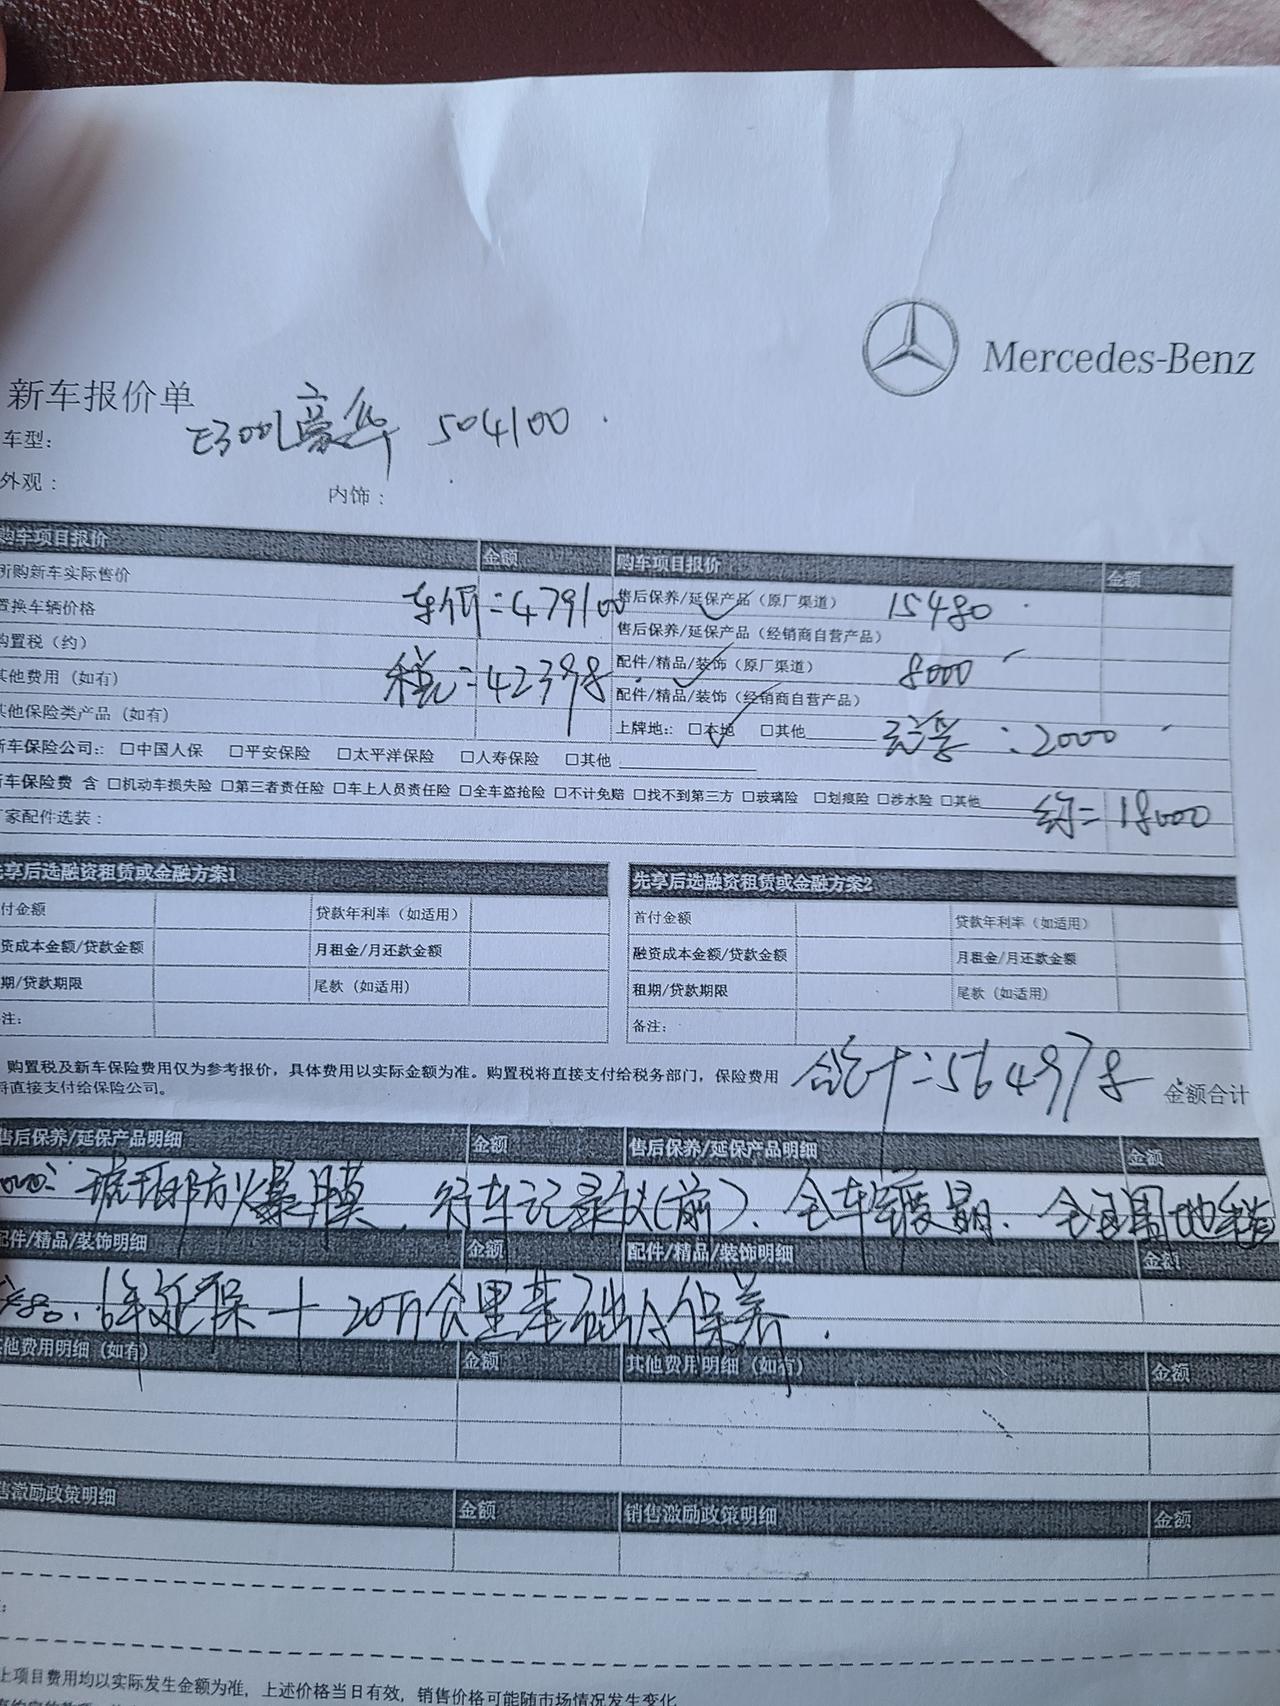 Mercedes-Benz
新车报价单
车型： E300L豪华 504100
外观： 内饰：
购车项目报价 金额 购车项目报价 金额
所购新车实际售价
车价=479100 售后保养/延保产品（原厂渠道） 15480
置换车辆价格 售后保养/延保产品（经销商自营产品）
购置税（约） 税:42398 配件/精品/装饰（原厂渠道） 8000
其他费用（如有） 配件/精品/装饰（经销商自营产品）
其他保险类产品（如有） 上牌地:: □本地 □其他 :2000
新车保险公司:: □中国人保 □平安保险 □太平洋保险 □人寿保险 □其他
新车保险费 含 □机动车损失险 □第三者责任险 □车上人员责任险 □全车盗抢险 □不计免赔 □找不到第三方 □玻璃险 □划痕险 □涉水险 □其他 约=18000
厂家配件选装：
先享后选融资租赁或金融方案1 先享后选融资租赁或金融方案2
付金额 贷款年利率（如适用） 首付金额 贷款年利率（如适用）
资成本金额/贷款金额 月租金/月还款金额 融资成本金额/贷款金额 月租金/月还款金额
期/贷款期限 尾款（如适用） 租期/贷款期限 尾款（如适用）
注： 备注：
购置税及新车保险费用仅为参考报价，具体费用以实际金额为准。购置税将直接支付给税务部门，保险费用
将直接支付给保险公司。 合计:564978 金额合计
售后保养/延保产品明细 金额 售后保养/延保产品明细 金额
琥珀防爆膜、行车记录仪(前)、全车镀晶、全包围地毯
配件/精品/装饰明细 金额 配件/精品/装饰明细 金额
6年延保+20万公里基础A保养.
其他费用明细（如有） 金额 其他费用明细（如有） 金额
售激励政策明细 金额 销售激励政策明细 金额
上项目费用均以实际发生金额为准，上述价格当日有效，销售价格可能随市场情况发生变化